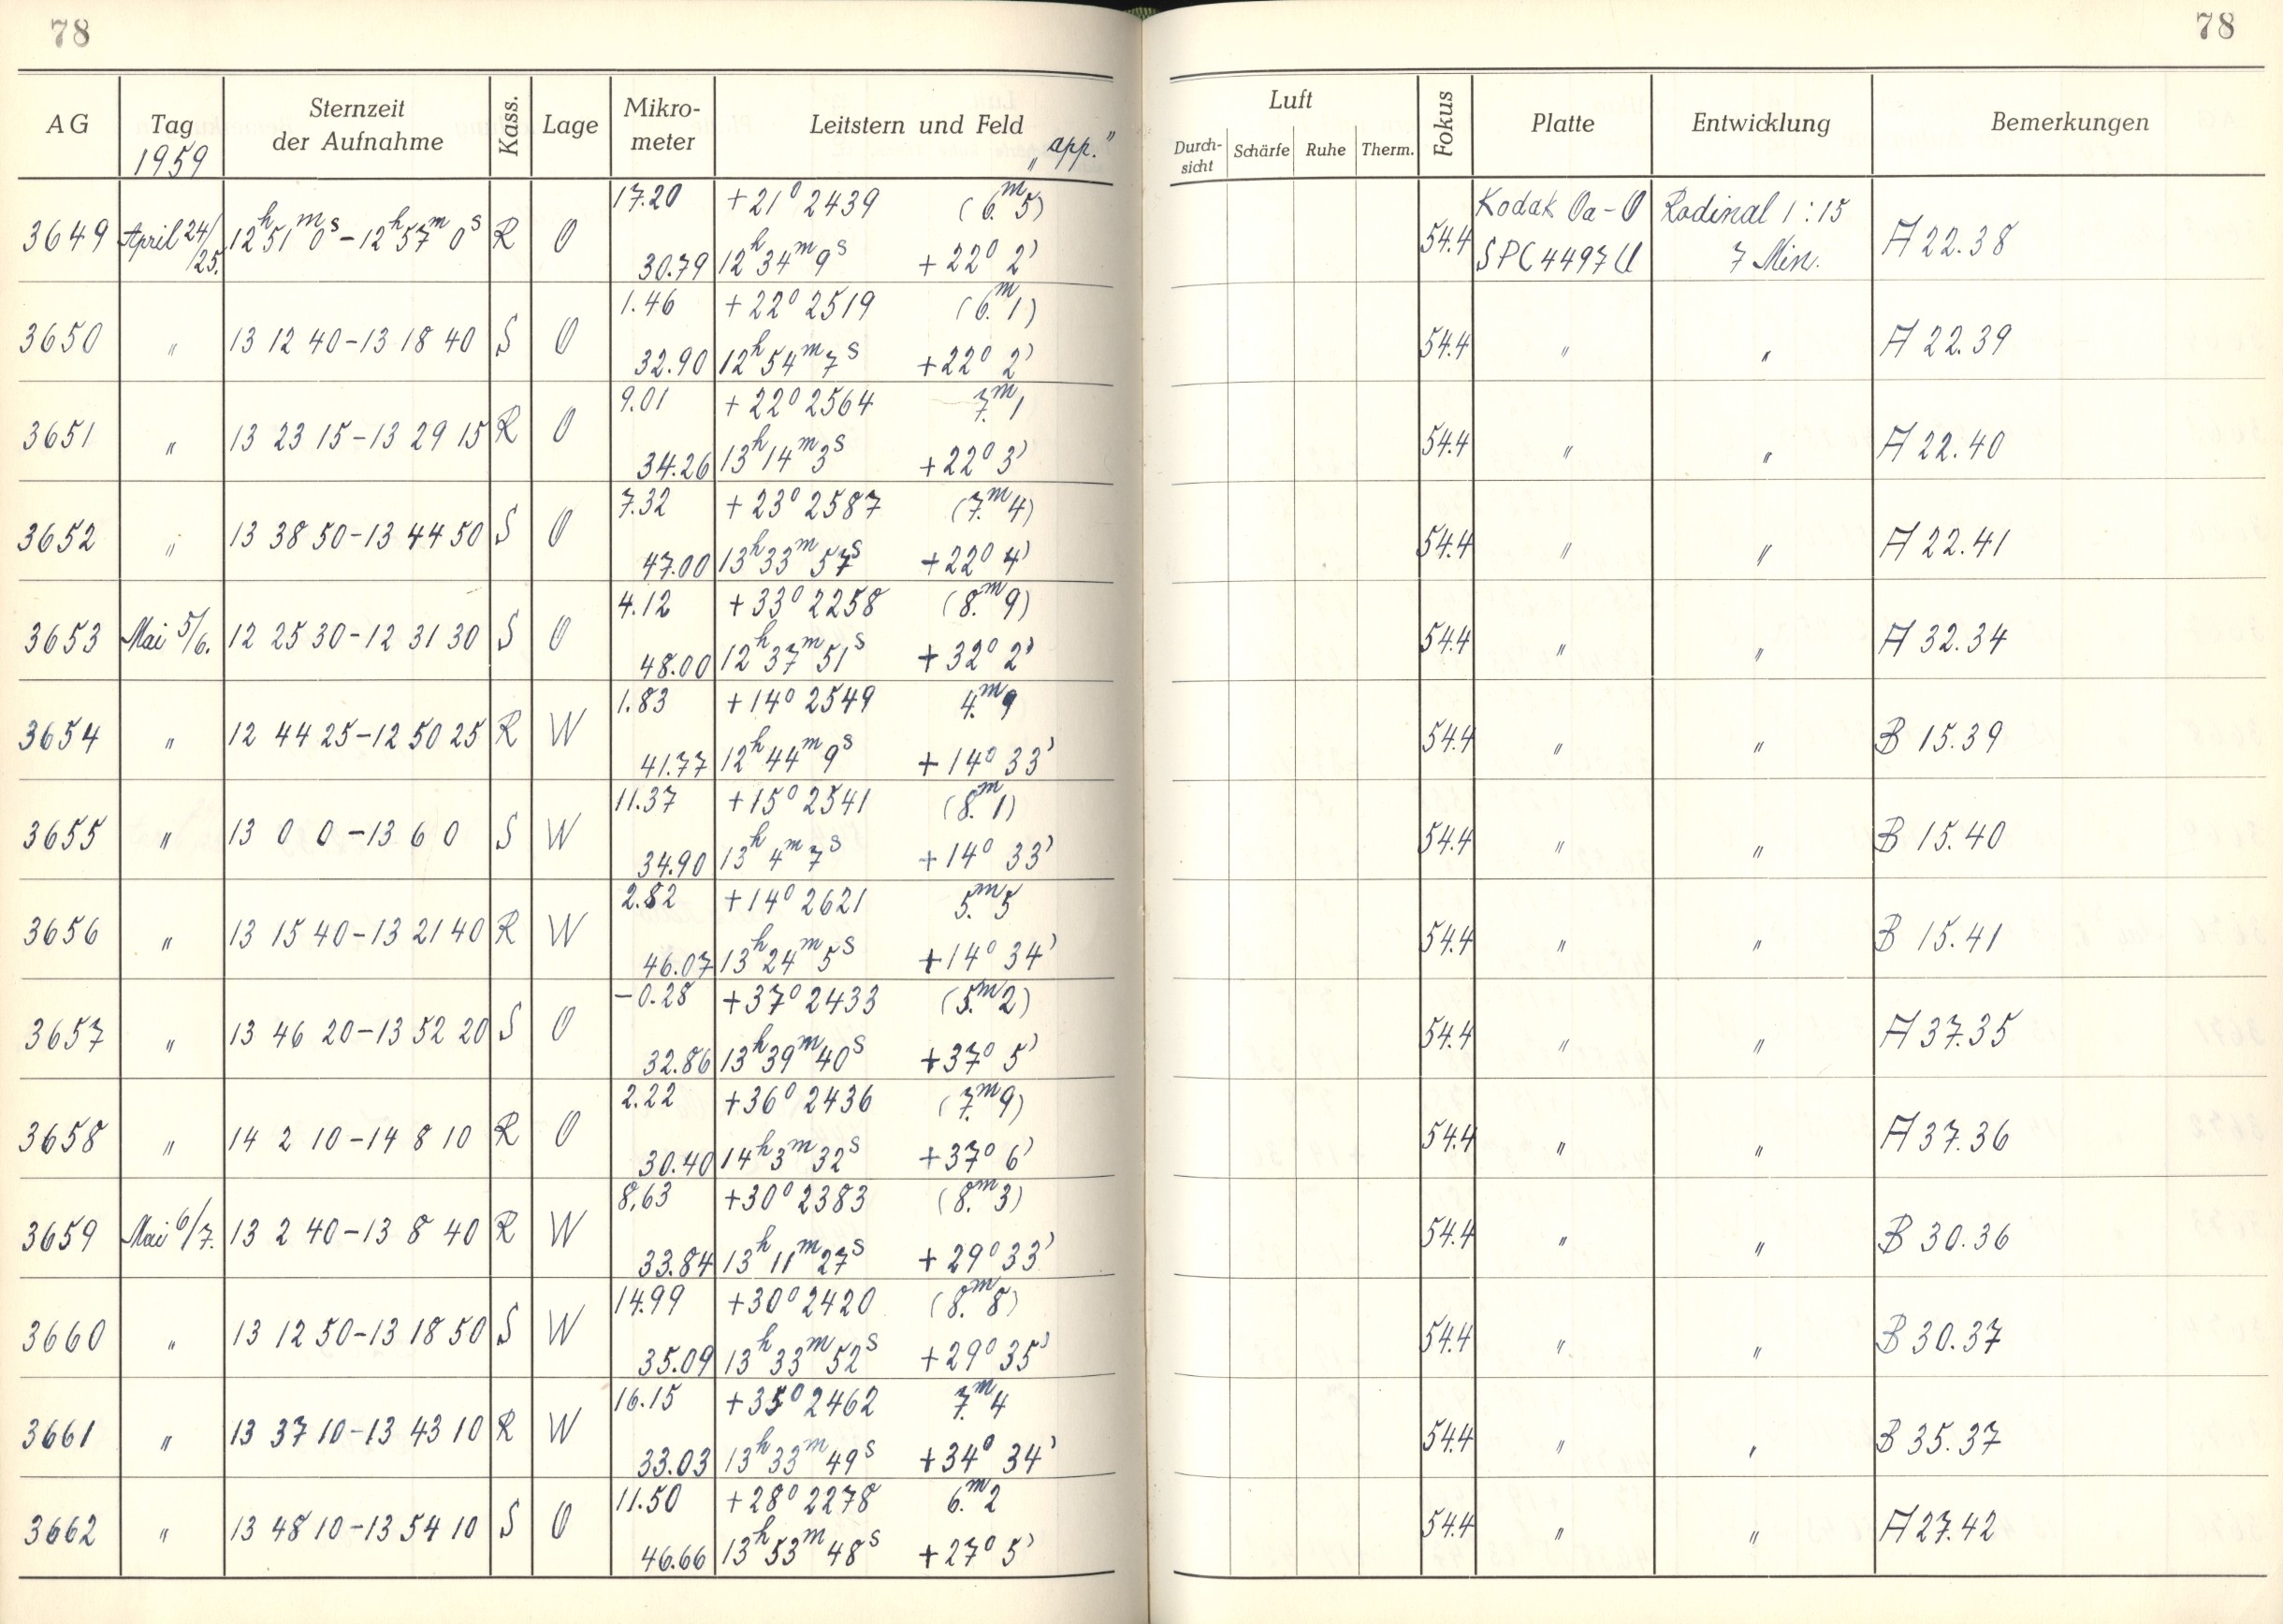 78
78
AG
Tag
1959
Sternzeit
der Aufnahme
Kass.
Lage
Mikro-
meter
Leitstern und Feld
"app."
Luft
Durch-
sicht
Schärfe
Ruhe
Therm.
Fokus
Platte
Entwicklung
Bemerkungen
17.20 +21° 2439 (6.ᵐ5) Kodak Oa-O Rodinal 1:15
3649 April 24/ 12ʰ51ᵐ0ˢ-12ʰ57ᵐ0ˢ R O 54.4 A 22.38
/25. 30.79 12ʰ34ᵐ9ˢ +22° 2' SPC4497U 7 Min.
1.46 +22° 2519 (6.ᵐ1)
3650 " 13 12 40-13 18 40 S O 54.4 " " A 22.39
32.90 12ʰ54ᵐ7ˢ +22° 2'
9.01 +22° 2564 7.ᵐ1
3651 " 13 23 15-13 29 15 R O 54.4 " " A 22.40
34.26 13ʰ14ᵐ3ˢ +22° 3'
7.32 +23° 2587 (7.ᵐ4)
3652 " 13 38 50-13 44 50 S O 54.4 " " A 22.41
47.00 13ʰ33ᵐ57ˢ +22° 4'
4.12 +33° 2258 (8.ᵐ9)
3653 Mai 5/6. 12 25 30-12 31 30 S O 54.4 " " A 32.34
48.00 12ʰ37ᵐ51ˢ +32° 2'
1.83 +14° 2549 4.ᵐ9
3654 " 12 44 25-12 50 25 R W 54.4 " " B 15.39
41.77 12ʰ44ᵐ9ˢ +14° 33'
11.37 +15° 2541 (8.ᵐ1)
3655 " 13 0 0-13 6 0 S W 54.4 " " B 15.40
34.90 13ʰ4ᵐ7ˢ +14° 33'
2.82 +14° 2621 5.ᵐ5
3656 " 13 15 40-13 21 40 R W 54.4 " " B 15.41
46.07 13ʰ24ᵐ5ˢ +14° 34'
-0.28 +37° 2433 (5.ᵐ2)
3657 " 13 46 20-13 52 20 S O 54.4 " " A 37.35
32.86 13ʰ39ᵐ40ˢ +37° 5'
2.22 +36° 2436 (7.ᵐ9)
3658 " 14 2 10-14 8 10 R O 54.4 " " A 37.36
30.40 14ʰ3ᵐ32ˢ +37° 6'
8.63 +30° 2383 (8.ᵐ3)
3659 Mai 6/7. 13 2 40-13 8 40 R W 54.4 " " B 30.36
33.84 13ʰ11ᵐ27ˢ +29° 33'
14.99 +30° 2420 (8.ᵐ8)
3660 " 13 12 50-13 18 50 S W 54.4 " " B 30.37
35.09 13ʰ33ᵐ52ˢ +29° 35'
16.15 +35° 2462 7.ᵐ4
3661 " 13 37 10-13 43 10 R W 54.4 " " B 35.37
33.03 13ʰ33ᵐ49ˢ +34° 34'
11.50 +28° 2278 6.ᵐ2
3662 " 13 48 10-13 54 10 S O 54.4 " " A 27.42
46.66 13ʰ53ᵐ48ˢ +27° 5'